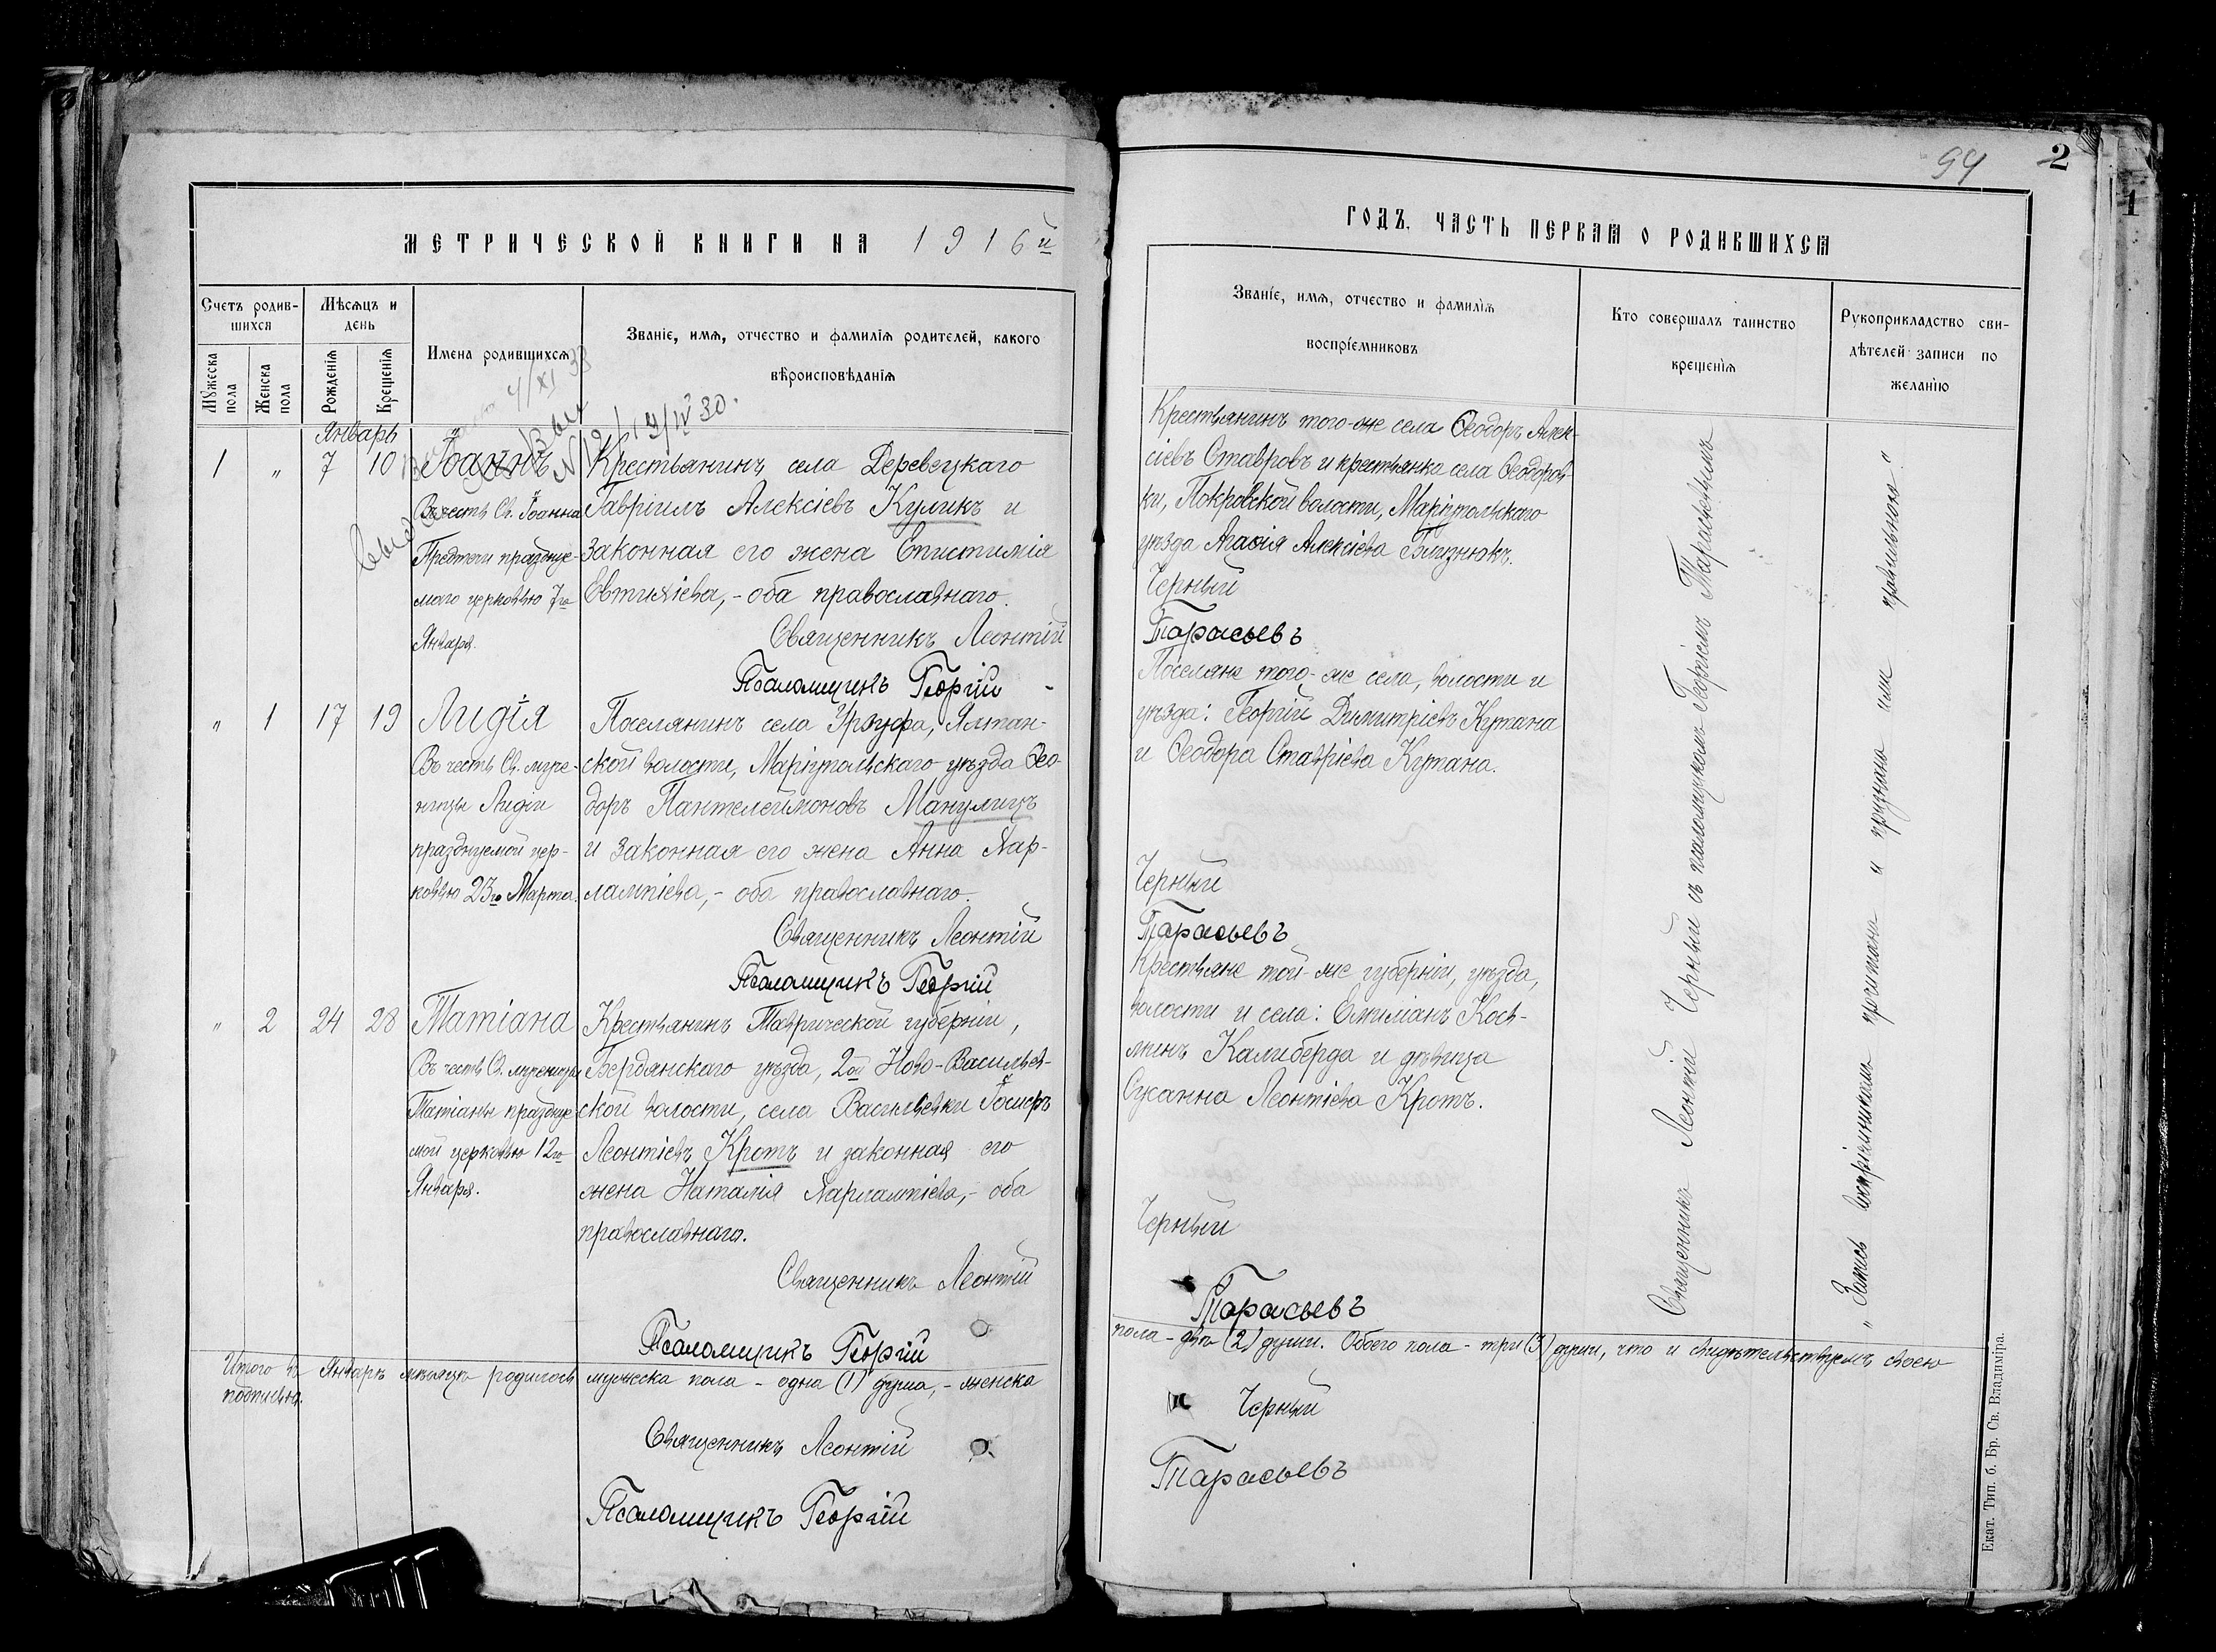 МЕТРИЧЕСКОЙ КНИГИ НА 1916й
Счетъ родив-
шихся
Мѣсяцъ и
день
Мужеска
пола
Женска
пола
Рожденія
Крещенія
Имена родившихся
Званіе, имя, отчество и фамилія родителей, какого
вѣроисповѣданія
4/XI 33
19/IV 30.
Январь
1 " 7 10 Іоаннъ
Въ честь Св. Іоанна
Предтечи праздну-
маго церковью 7го
Января.
Крестьянинъ села Деревецкаго
Гавріилъ Алексіевъ Куликъ и
законная его жена Епистимія
Евтихіева, - оба православнаго.
Священникъ Леонтій
Псаломщикъ Георгій
" 1 17 19 Лидія
Въ честь Св. муче-
ницы Лидіи
празднуемой цер-
ковью 23го Марта.
Поселянинъ села Урзуфа, Ялтан-
ской волости, Маріупольскаго уѣзда Ѳео-
доръ Пантелеймоновъ Манулицъ
и законная его жена Анна Хар-
лампіева, - оба православнаго.
Священникъ Леонтій
Псаломщикъ Георгій
" 2 24 28 Татіана
Въ честь Св. мученицы
Татіаны праздну-
мой церковью 12го
Января.
Крестьянинъ Таврической губерніи,
Бердянскаго уѣзда, 2ой Ново-Васильев-
ской волости, села Васильевки Іосифъ
Леонтіевъ Кротъ и законная его
жена Наталія Харлампіева, - оба
православнаго.
Священникъ Леонтій
Псаломщикъ Георгій
Итого въ Январѣ мѣсяцѣ родилось мужеска пола - одна (1) душа, - женска
подписью.
Священникъ Леонтій
Псаломщикъ Георгій
94
2
1
ГОДЪ, ЧАСТЬ ПЕРВАЯ О РОДИВШИХСЯ
Званіе, имя, отчество и фамилія
воспріемниковъ
Кто совершалъ таинство
крещенія
Рукоприкладство сви-
дѣтелей записи по
желанію
Крестьянинъ того-же села Ѳеодоръ Алек-
сіевъ Ставровъ и крестьянка села Ѳеодоров-
ки, Покровской волости, Маріупольскаго
уѣзда Агафія Алексіева Близнюкъ.
Черный
Тарасьевъ
Поселяне того-же села, волости и
уѣзда: Георгій Димитріевъ Кутана
и Ѳеодора Ставріева Кутана.
Черный
Тарасьевъ
Крестьяне той-же губерніи, уѣзда,
волости и села: Емиліанъ Кось-
минъ Калиберда и дѣвица
Сусанна Леонтіева Кротъ.
Черный
Тарасьевъ
Священникъ Леонтій Черный съ псаломщикомъ Георгіемъ Тарасьевымъ
"Запись воспріемниками прочитана и признана ими правильною"
пола - двѣ (2) души. Обоего пола - три (3) души, что и свидѣтельствуемъ своею
Черный
Тарасьевъ
Екат. Тип. б. Бр. Св. Владиміра.